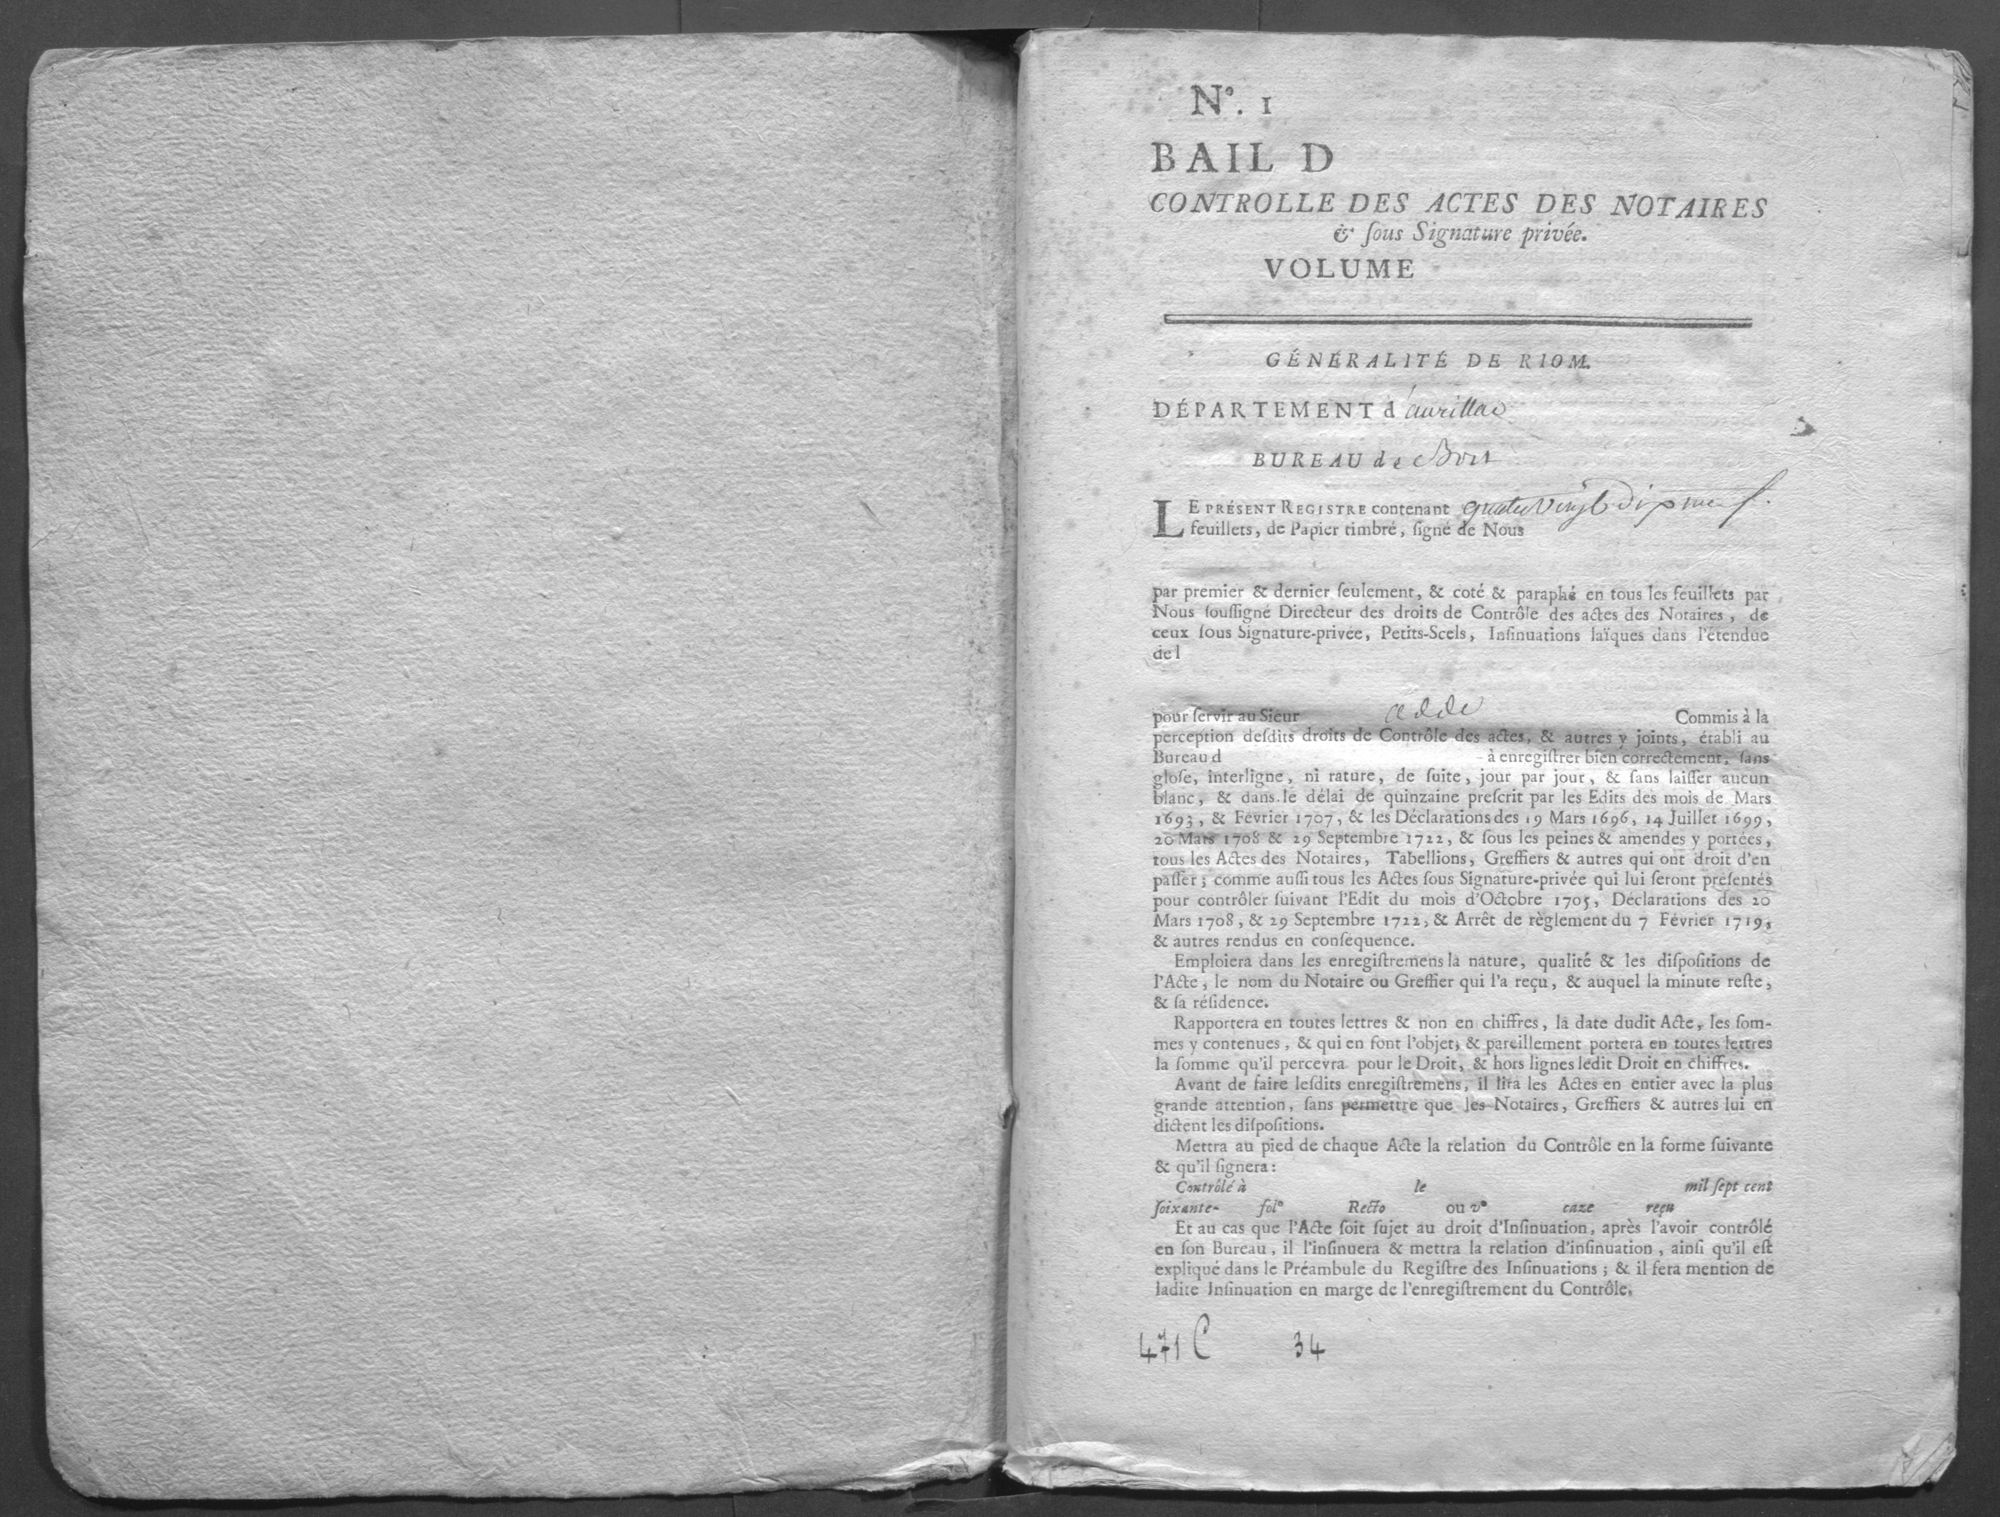 Nº. 1
BAIL D
CONTROLLE DES ACTES DES NOTAIRES
& ſous Signature privée.
VOLUME
GÉNÉRALITÉ DE RIOM.
DÉPARTEMENT d'aurillac
BUREAU de
LE PRÉSENT REGISTRE contenant quatre vingt dix neuf
feuillets, de Papier timbré, ſigné de Nous
par premier & dernier ſeulement, & coté & paraphé en tous les feuillets par
Nous ſouſſigné Directeur des droits de Contrôle des actes des Notaires, de
ceux ſous Signature-privée, Petits-Scels, Inſinuations laïques dans l'étendue
de l
pour ſervir au Sieur Commis à la
perception deſdits droits de Contrôle des actes, & autres y joints, établi au
Bureau d à enregiſtrer bien correctement, ſans
gloſe, interligne, ni rature, de ſuite, jour par jour, & ſans laiſſer aucun
blanc, & dans le délai de quinzaine preſcrit par les Edits des mois de Mars
1693, & Février 1707, & les Déclarations des 19 Mars 1696, 14 Juillet 1699,
20 Mars 1708 & 29 Septembre 1722, & ſous les peines & amendes y portées,
tous les Actes des Notaires, Tabellions, Greffiers & autres qui ont droit d'en
paſſer; comme auſſi tous les Actes ſous Signature-privée qui lui ſeront préſentés
pour contrôler ſuivant l'Edit du mois d'Octobre 1705, Déclarations des 20
Mars 1708, & 29 Septembre 1722, & Arrêt de règlement du 7 Février 1719,
& autres rendus en conſequence.
Emploiera dans les enregiſtremens la nature, qualité & les diſpoſitions de
l'Acte, le nom du Notaire ou Greffier qui l'a reçu, & auquel la minute reſte,
& ſa réſidence.
Rapportera en toutes lettres & non en chiffres, la date dudit Acte, les ſom-
mes y contenues, & qui en font l'objet, & pareillement portera en toutes lettres
la ſomme qu'il percevra pour le Droit, & hors lignes ledit Droit en chiffres.
Avant de faire leſdits enregiſtremens, il lira les Actes en entier avec la plus
grande attention, ſans permettre que les Notaires, Greffiers & autres lui en
dictent les diſpoſitions.
Mettra au pied de chaque Acte la relation du Contrôle en la forme ſuivante
& qu'il ſignera:
Contrôlé à le mil ſept cent
ſoixante- folº Recto ou vº caze reçu
Et au cas que l'Acte ſoit ſujet au droit d'Inſinuation, après l'avoir contrôlé
en ſon Bureau, il l'inſinuera & mettra la relation d'inſinuation, ainſi qu'il eſt
expliqué dans le Préambule du Regiſtre des Inſinuations; & il fera mention de
ladite Inſinuation en marge de l'enregiſtrement du Contrôle.
471 C 34